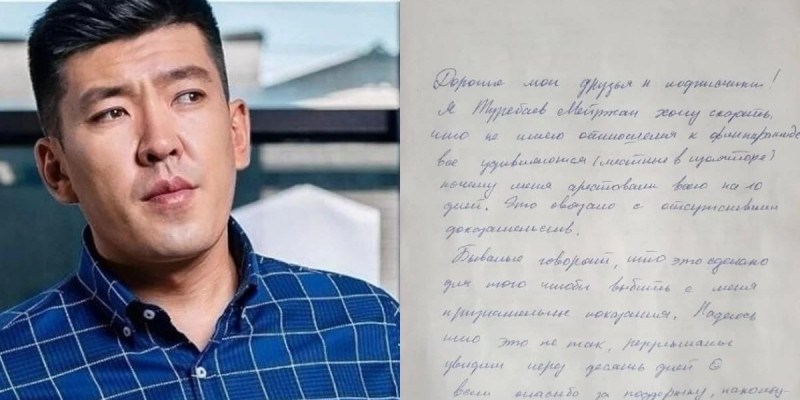 Дорогие мои друзья и подписчики!
Я Туребаев Мейржан хочу сказать,
что не имею отношения к финпирамиде
все удивляются (местные в изоляторе)
почему меня арестовали всего на 10
дней. Это связано с отсутствием
доказательств.
Бывалые говорят, что это сделано
для того чтобы выбить с меня
признательные показания. Надеюсь
что это не так, результаты
увидим через десять дней
всем спасибо за поддержку, наконец-